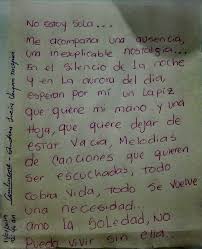 No estoy sola...
Me acompaña una ausencia,
una inexplicable nostalgia...
En el Silencio de la noche
y en la aurora del día,
esperan por mí un Lapiz
que quiere mi mano. y una
Hoja, que quiere dejar de
estar Vacía, Melodías
de Canciones que quieren
Ser escuchadas, todo
Cobra Vida, todo Se Vuelve
una necesidad...
amo la Soledad, NO
Puedo Vivir sin ella.